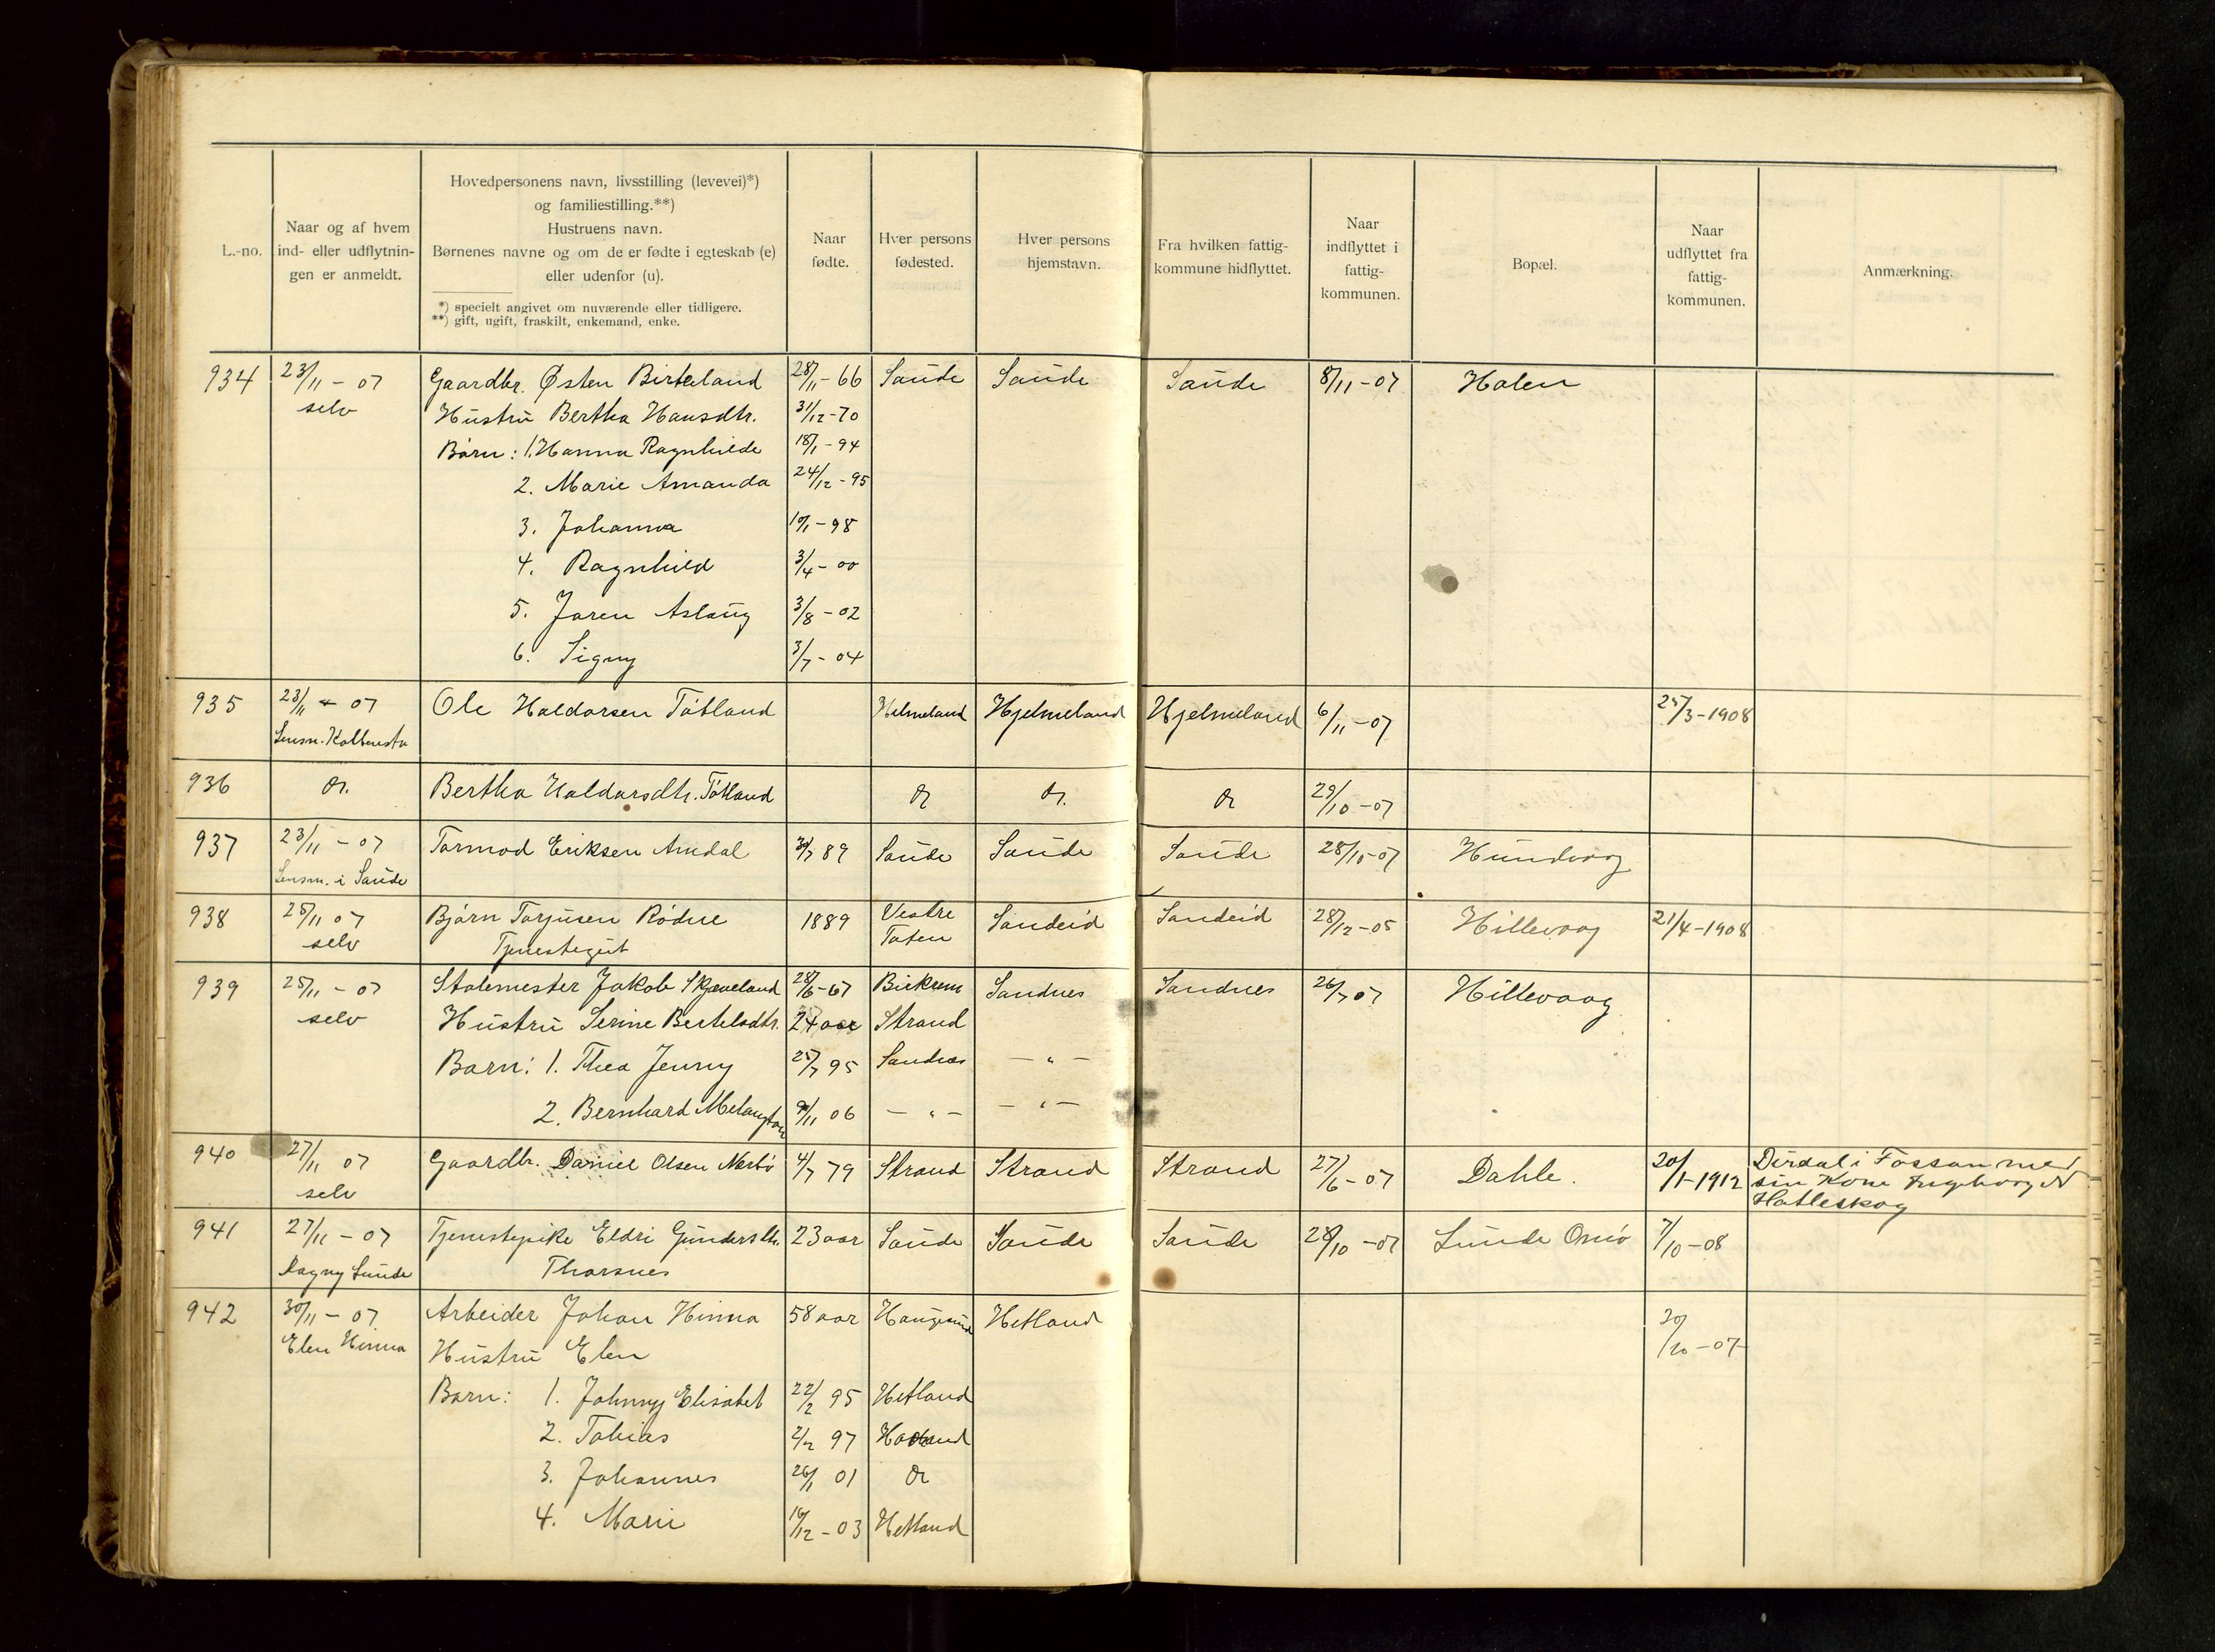 L.-no.
Naar og af hvem
ind- eller udflytnin-
gen er anmeldt.
Hovedpersonens navn, livsstilling (levevei)*)
og familiestilling.**)
Hustruens navn.
Børnenes navne og om de er fødte i egteskab (e)
eller udenfor (u).
*) specielt angivet om nuværende eller tidligere.
**) gift, ugift, fraskilt, enkemand, enke.
Naar
fødte.
Hver persons
fødested.
Hver persons
hjemstavn.
Fra hvilken fattig-
kommune hidflyttet.
Naar
indflyttet i
fattig-
kommunen.
Bopæl.
Naar
udflyttet fra
fattig-
kommunen.
Anmærkning.
934 23/11 - 07 Gaardbr. Østen Birkeland 28/11 - 66 Saude Saude Saude 8/11 - 07 Halen
selv Hustru Bertha Hansdtr. 31/12 - 70
Børn: 1. Hanna Ragnhilde 18/1 - 94
2. Marie Amanda 24/12 - 95
3. Johanna 10/1 - 98
4. Ragnhild 3/4 - 00
5. Jaren Aslaug 3/8 - 02
6. Signy 3/7 - 04
935 23/11 - 07 Ole Haldorsen Tøtland Hjelmeland Hjelmeland Hjelmeland 6/11 - 07 25/3 - 1908
Lensm.
936 do. Bertha Haldorsdtr. Tøtland do do. do 29/10 - 07
937 23/11 - 07 Tormod Eriksen Amdal 89 Saude Saude Saude 28/10 - 07 Hundvaag
Lensm. i Saude
938 25/11 07 Bjørn Torjusen Rødne 1889 Vestre Sandeid Sandeid 28/12 - 05 Hillevaag 21/4 - 1908
selv Tjenestegut Toten
939 25/11 - 07 Stolemester Jakob Skjæveland 28/6 - 67 Birkrem Sandnes Sandnes 26/7 07 Hillevaag
selv Hustru Serine Bertelsdtr. 24 aar Strand
Barn: 1. Thea Jenny 25/7 95 Sandnes - " -
2. Bernhard Melangton 9/11 06 - " - - " -
940 27/11 07 Gaardbr. Daniel Olsen Nerbø 4/7 79 Strand Strand Strand 27/6 - 07 Dahle. 20/1 - 1912 Dirdal i Fossan med
selv sin Kone Ingeborg
Hatleskog
941 27/11 - 07 Tjenestepike Eldri Gundersdtr. 23 aar Saude Saude Saude 28/10 - 07 Lunde Omø 7/10 - 08
Ragny Lunde Thorsnes
942 30/11 - 07 Arbeider Johan Hinna 58 aar Haugesund Hetland 30/10 - 07
Elen Hinna Hustru Elen
Barn: 1. Johnny Elisabet 22/2 95 Hetland
2. Tobias 2/2 97 Haaland
3. Johannes 26/1 01 do
4. Marie 16/12 - 03 Hetland